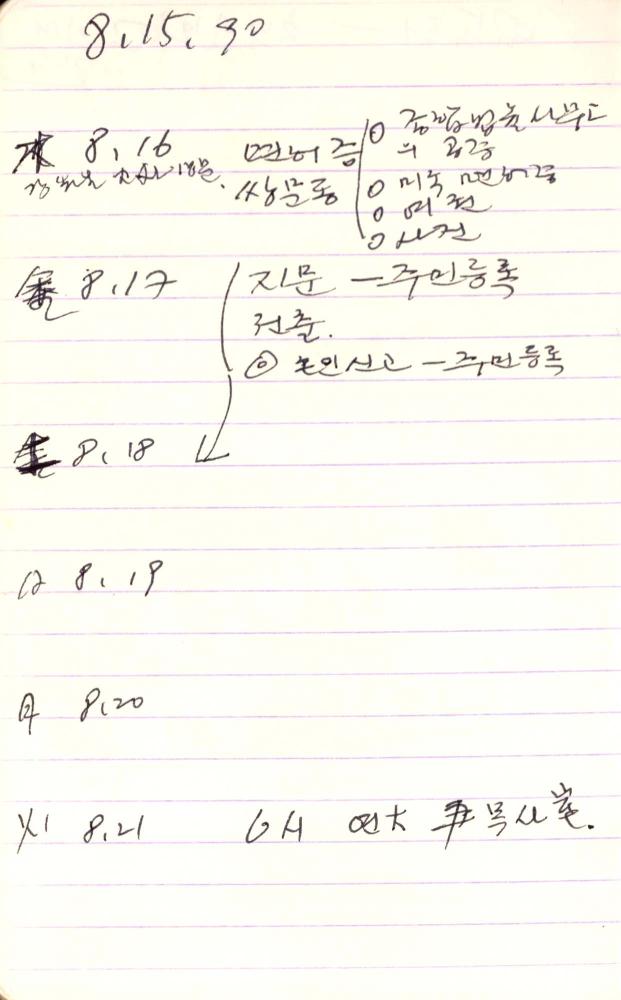 8.15.90
木 8.16 면허증 ○ 종합법률사무소
의 공증
쌍문동 ○ 미국 면허증
○ 여권
○ 사진
金 8.17 지문 - 주민등록
전출.
◎ 혼인신고 - 주민등록
土 8.18
日 8.19
月 8.20
火 8.21 6시 연大 목사室.